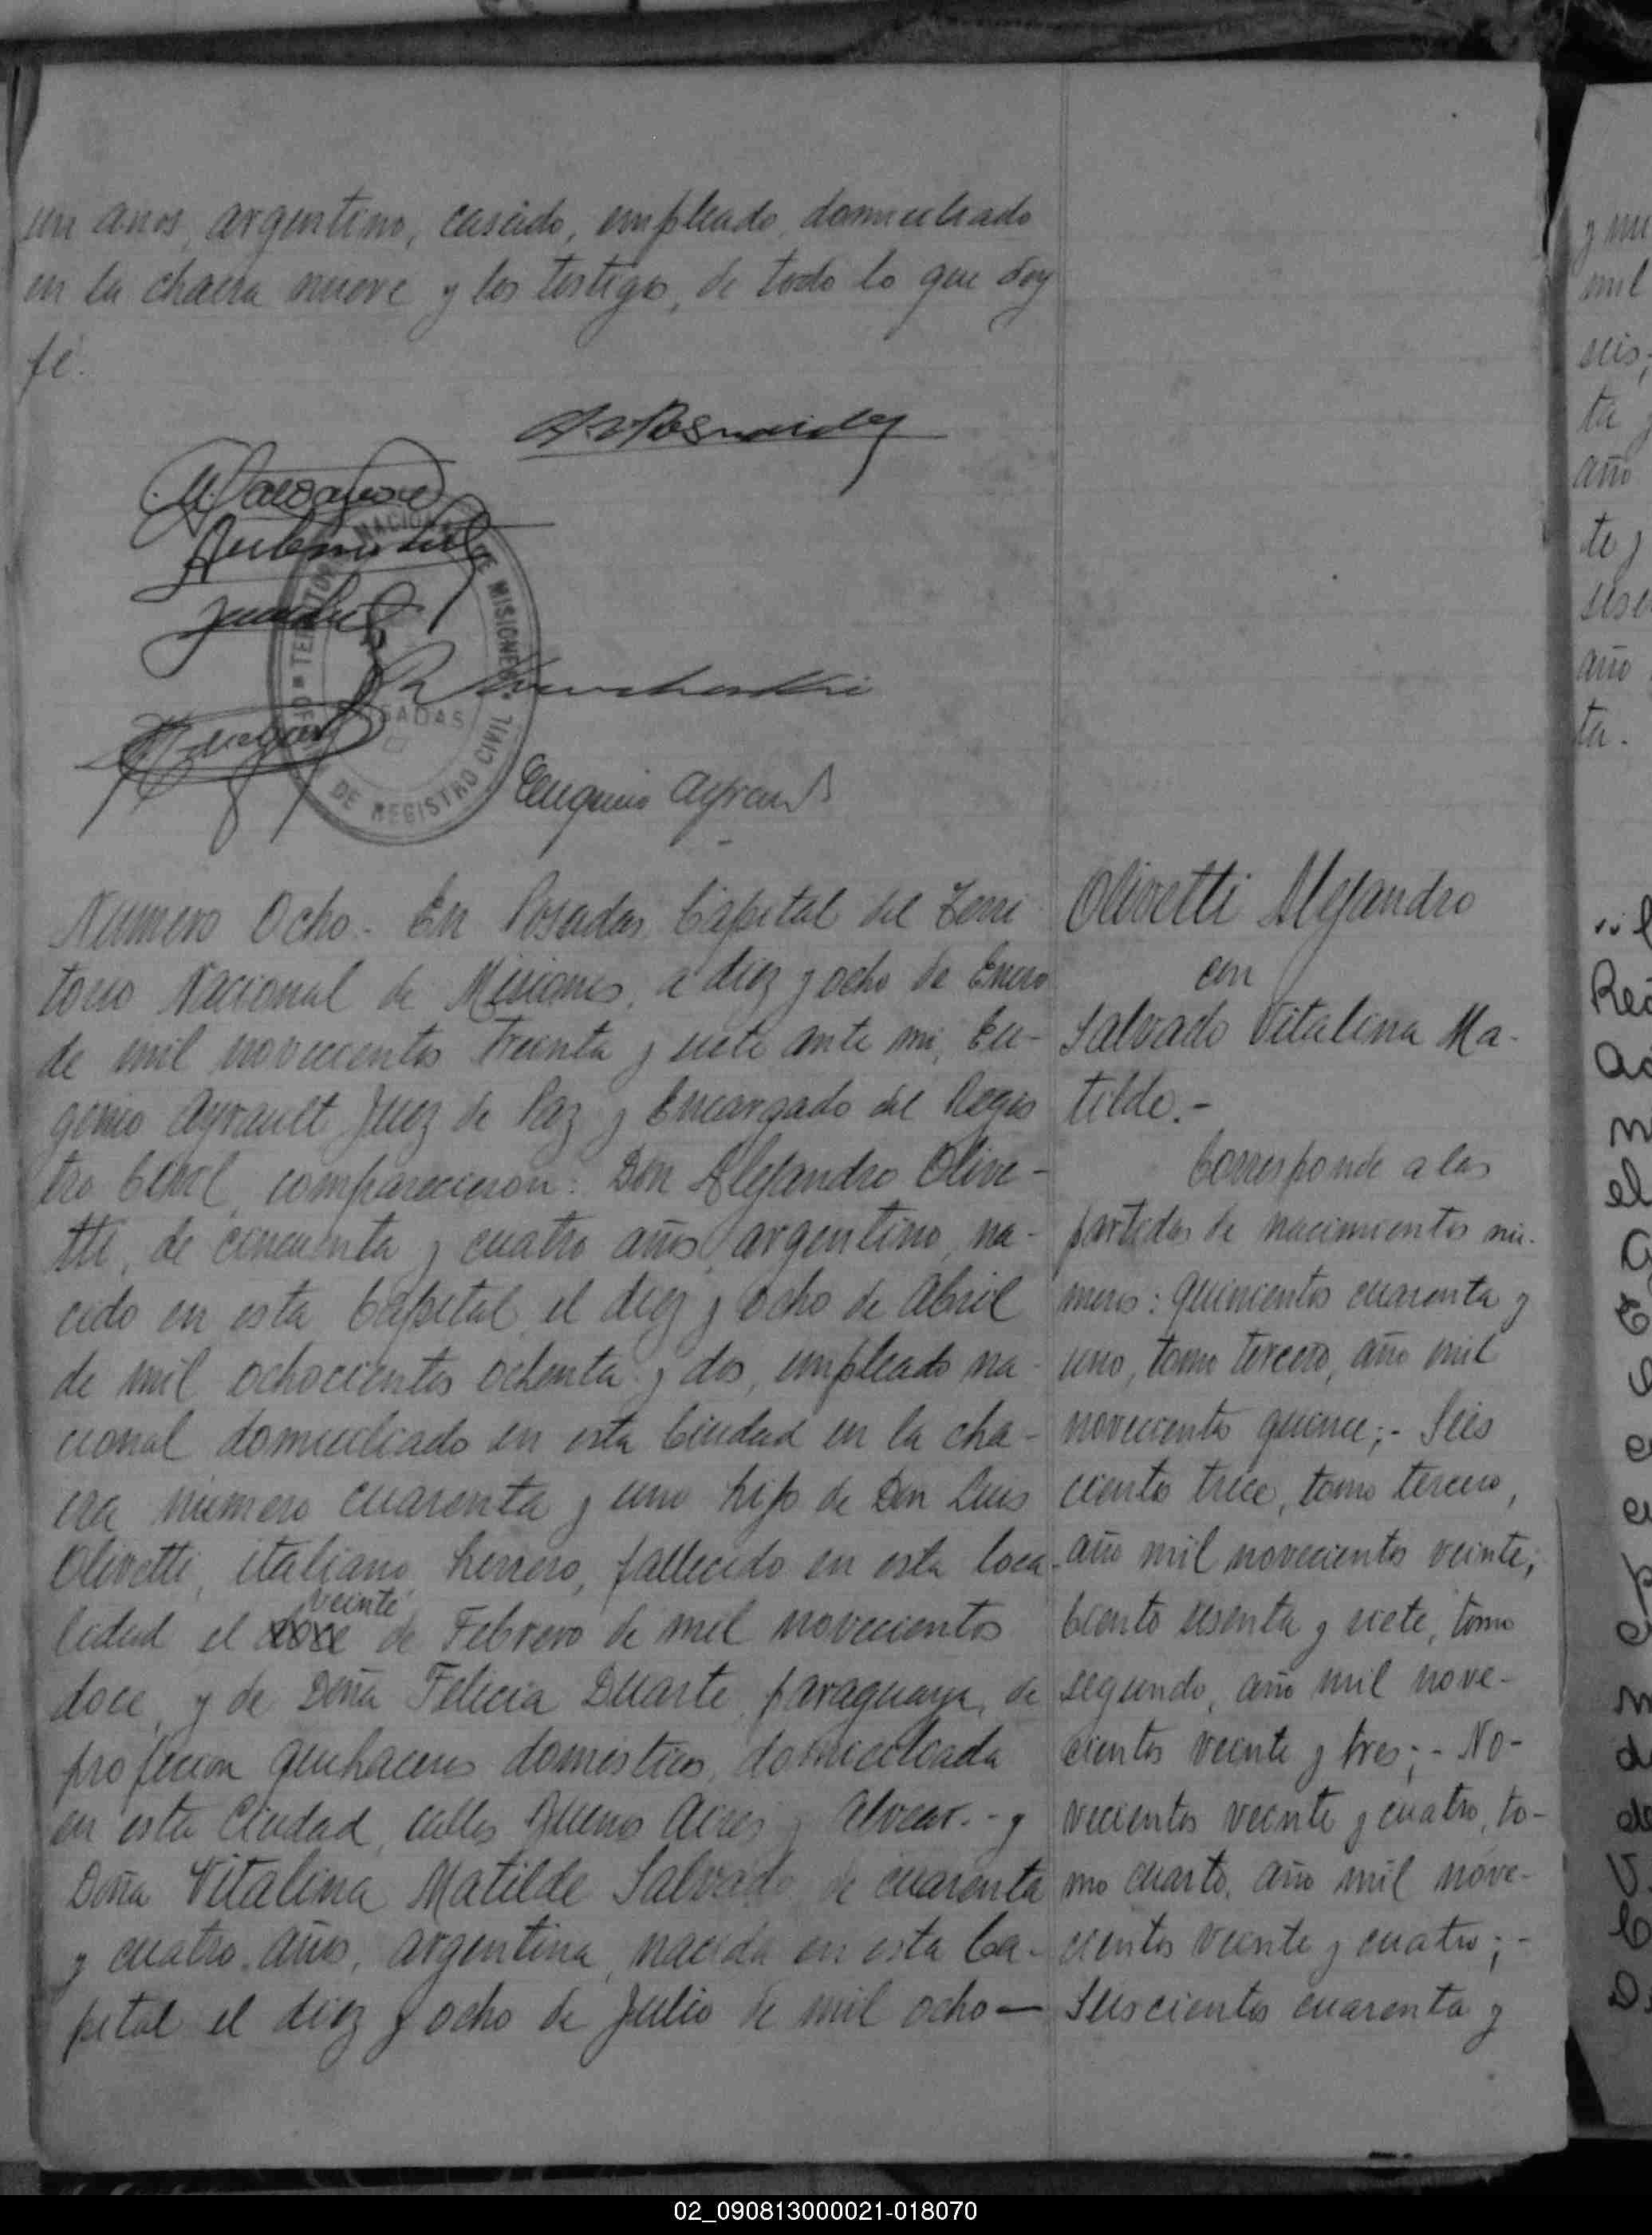 un anos, argentino, casado, empleado, domiciliado
en la chacra nueve y los testigos, de todo lo que doy
fé.
TERRITORIO NACIONAL DE MISIONES
POSADAS
DE REGISTRO CIVIL
Eugenio Ayrault
Numero Ocho.- En Posadas Capital del Terri
torio Nacional de Misiones, a diez y ocho de Enero
de mil novecientos treinta y siete ante mi, Eu-
genio Ayrault Juez de Paz y Encargado del Regis
tro Civil, comparecieron: Don Alejandro Olive-
tti, de cincuenta y cuatro años, argentino, na-
cido en esta Capital el diez y ocho de Abril
de mil ochocientos ochenta y dos, empleado na-
cional domiciliado en esta Ciudad en la cha-
cra número cuarenta y uno hijo de Don Luis
Olivetti, italiano, herrero, fallecido en esta loca-
veinte
lidad el doce de Febrero de mil novecientos
doce, y de Doña Felicia Duarte, paraguaya, de
profecion quehaceres domesticos, domiciliada
en esta Ciudad, calles Buenos Aires y Alvear.- y
Doña Vitalina Matilde Salvado de cuarenta
y cuatro años, argentina, nacida en esta Ca-
pital el diez y ocho de Julio de mil ocho—
Olivetti Alejandro
con
Salvado Vitalina Ma-
tilde.-
Corresponde a las
partidas de nacimientos nú-
meros: quinientos cuarenta y
uno, tomo tercero, año mil
novecientos quince;- Seis
cientos trece, tomo tercero,
año mil novecientos veinte;
Ciento sesenta y siete, tomo
segundo, año mil nove-
cientos veinte y tres;- No-
vecientos veinte y cuatro, to-
mo cuarto, año mil nove-
cientos veinte y cuatro;-
Seiscientos cuarenta y
mil
seis;
ta y
año
te y
año
ta.
el
02_090813000021-018070